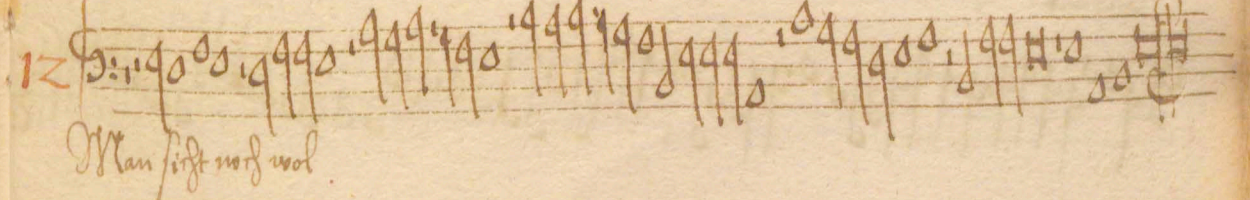 12
Man sicht noch wol